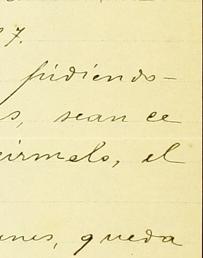 7.
pidiendo-
s, sean ce
cirmelo, el
unes, queda